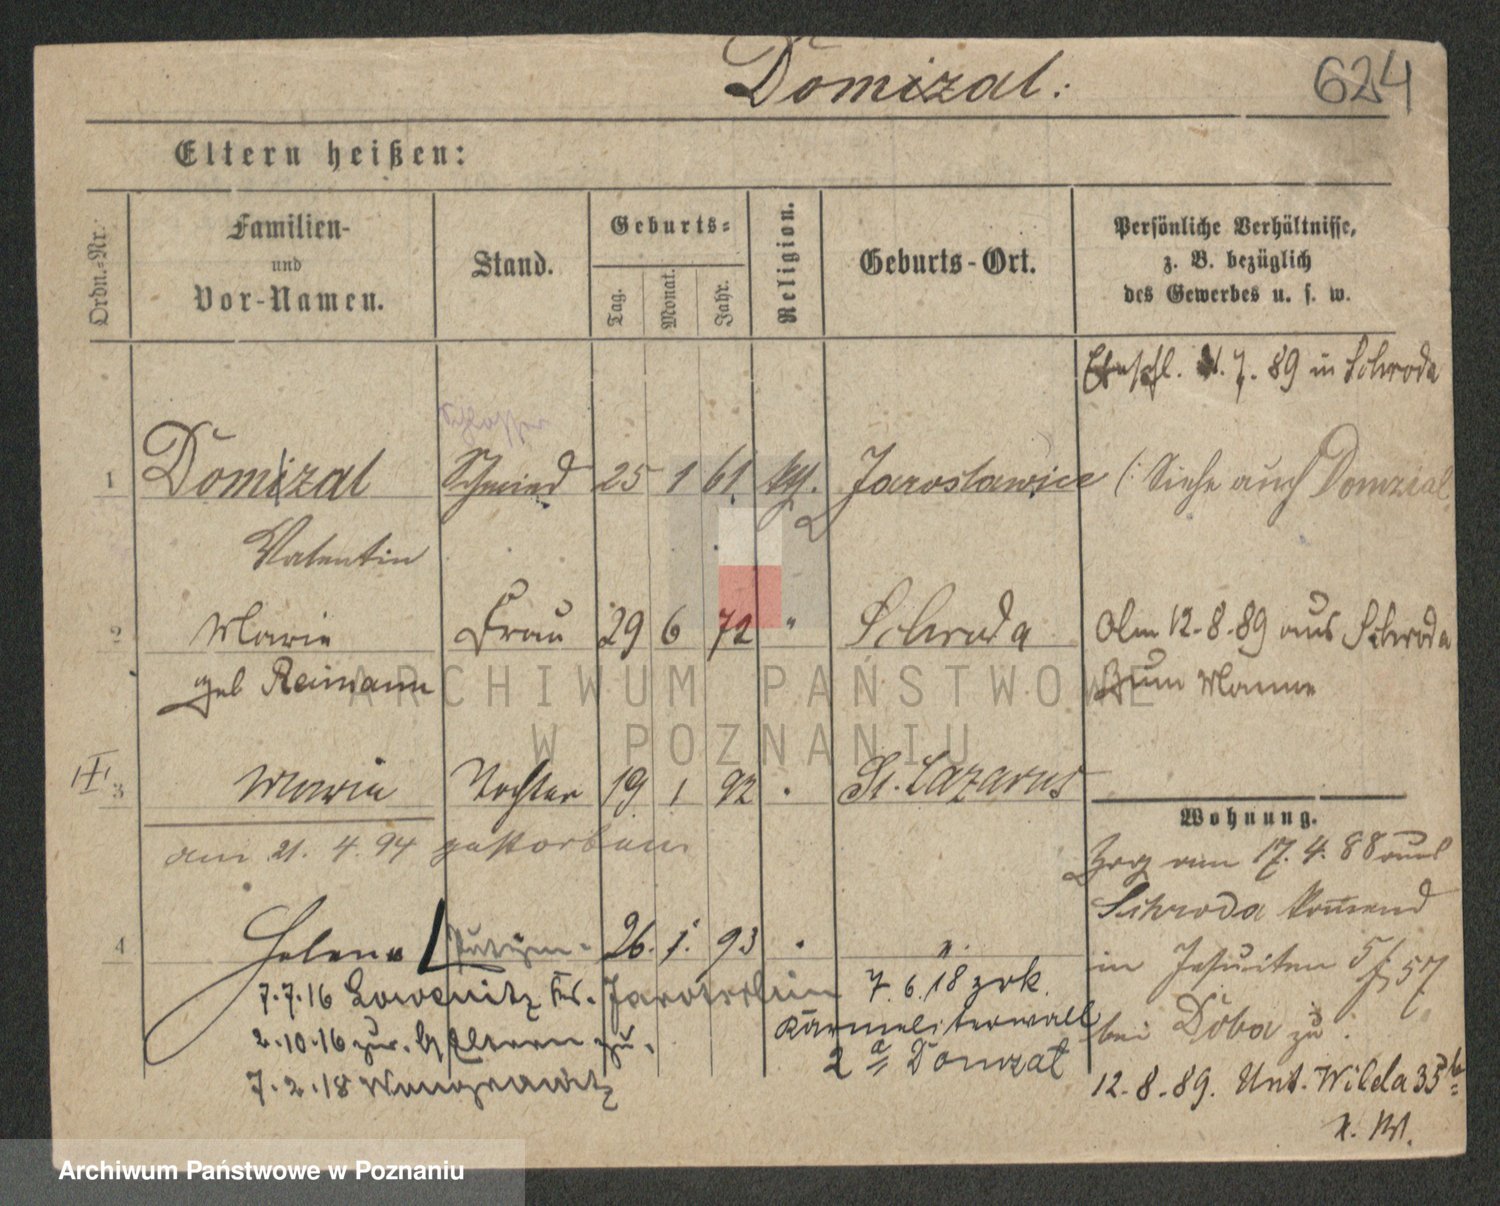 Domizal.
624
Eltern heißen:
Ordn.-Nr.
Familien-
und
Vor-Namen.
Stand.
Geburts-
Tag.
Monat.
Jahr.
Religion.
Geburts-Ort.
Persönliche Verhältnisse,
z. B. bezüglich
des Gewerbes u. s. w.
7. 89 in Schroda
Schlosser
1 Domizal Schmied 25 1 61. Jaroslawice (: Siehe auch Domzial
Valentin
2 Marie Frau 29 6 72 " Schroda
geb Reimann
12.8.89 aus Schroda
zum Manne
3 Maria Tochter 19 1 92 " St. Lazarus
am 21. 4. 94 gestorben
4 Helene 26. 1. 93 " "
7.7.16 Kr. Jarotschin
2.10.16 zur. Eltern zu.
7.2.18
7.6.18 zrk.
Karmeliterwall
2 a Domzal
Wohnung.
Zog am 17. 4. 88 aus
Schroda kommend
in Jesuiten 5/ 57
bei Doba zu.
12.8.89. Unt. Wilda 35
ARCHIWUM PAŃSTWOWE
W POZNANIU
Archiwum Państwowe w Poznaniu